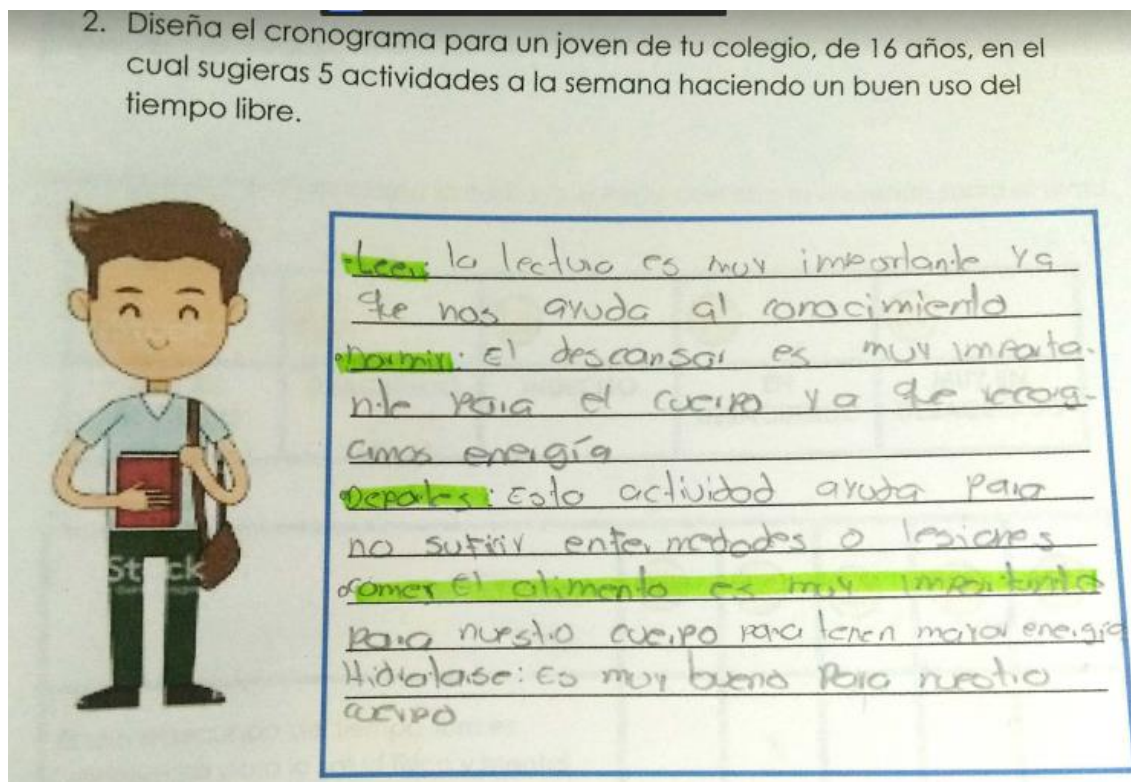 2. Diseña el cronograma para un joven de tu colegio, de 16 años, en el
cual sugieras 5 actividades a la semana haciendo un buen uso del
tiempo libre.
Leer: la lectura es muy importante ya
que nos ayuda al conocimiento
Dormir: El descansar es muy importa-
nte para el cuerpo ya que recarg-
amos energía
Deportes: Esta actividad ayuda para
no sufrir enfermedades o lesiones
comer El alimento es muy importante
para nuestro cuerpo para tener mayor energía
Hidratase: Es muy bueno para nuestro
cuerpo
Stock